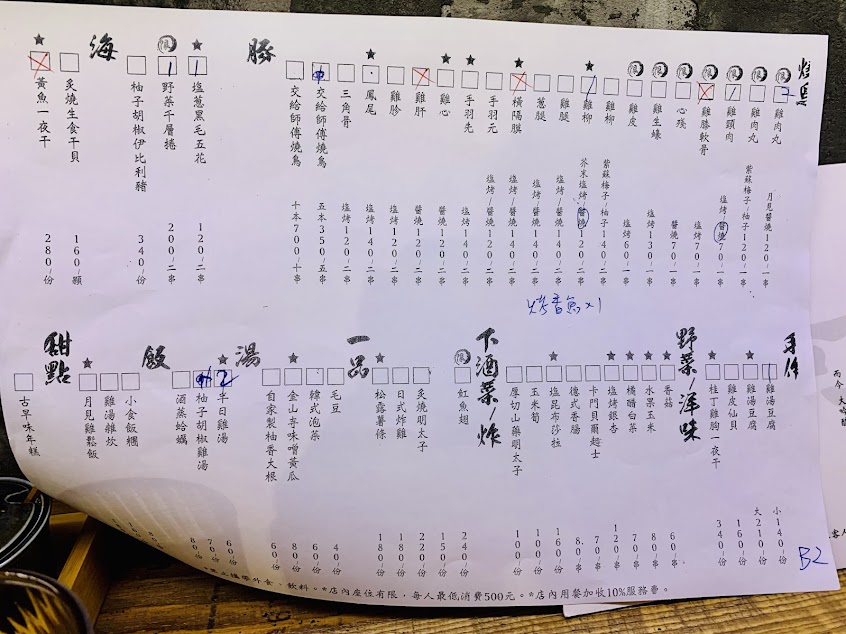 烤鳥
限 雞肉丸 月見醬燒 120/一串
限 雞肉丸 紫蘇梅子/柚子 120/一串
限 雞頸肉 塩烤/醬燒 70/一串
限 雞膝軟骨 塩烤 70/一串
限 心殘 醬燒 70/一串
限 雞生蠔 塩烤 130/一串
限 雞皮 塩烤 60/一串
雞柳 紫蘇梅子/柚子 140/二串
雞柳 芥末塩烤/醬燒 120/二串
雞腿 塩烤/醬燒 140/二串
蔥腿 塩烤/醬燒 140/二串
橫隔膜 塩烤/醬燒 140/二串
手羽元 塩烤/醬燒 120/二串
手羽先 塩烤 140/二串
雞心 醬燒 120/二串
雞肝 醬燒 120/二串
雞胗 塩烤 120/二串
鳳尾 塩烤 140/二串
三角骨 塩烤 120/二串
交給師傅燒鳥 五本350/五串
交給師傅燒鳥 十本700/十串
豚
塩蔥黑毛五花 120/二串
限 野菜千層捲 200/二串
柚子胡椒伊比利豬 340/份
海
炙燒生食干貝 160/顆
黃魚一夜干 280/份
烤香魚x1
手作
雞湯豆腐 小140/份
雞湯豆腐 大210/份
雞皮仙貝 160/份
桂丁雞胸一夜干 340/份
野菜/洋味
香菇 60/份
水果玉米 80/份
橘醋白菜 70/份
塩烤銀杏 120/份
卡門貝爾起士 70/串
德式香腸 80/串
塩昆布莎拉 160/份
玉米筍 100/份
厚切山藥明太子 100/份
下酒菜/炸
限 魟魚翅 240/份
炙燒明太子 220/份
日式炸雞 180/份
松露薯條 180/份
一品
毛豆 40/份
韓式泡菜 60/份
金山寺味噌黃瓜 80/份
自家製柚香大根 60/份
湯
半日雞湯 60/份
柚子胡椒雞湯 70/份
酒蒸蛤蠣 80/份
飯
小食飯糰
雞湯雜炊
月見雞鬆飯
甜點
古早味年糕
外食、飲料。*店內座位有限，每人最低消費500元。*店內用餐加收10%服務費。
B2